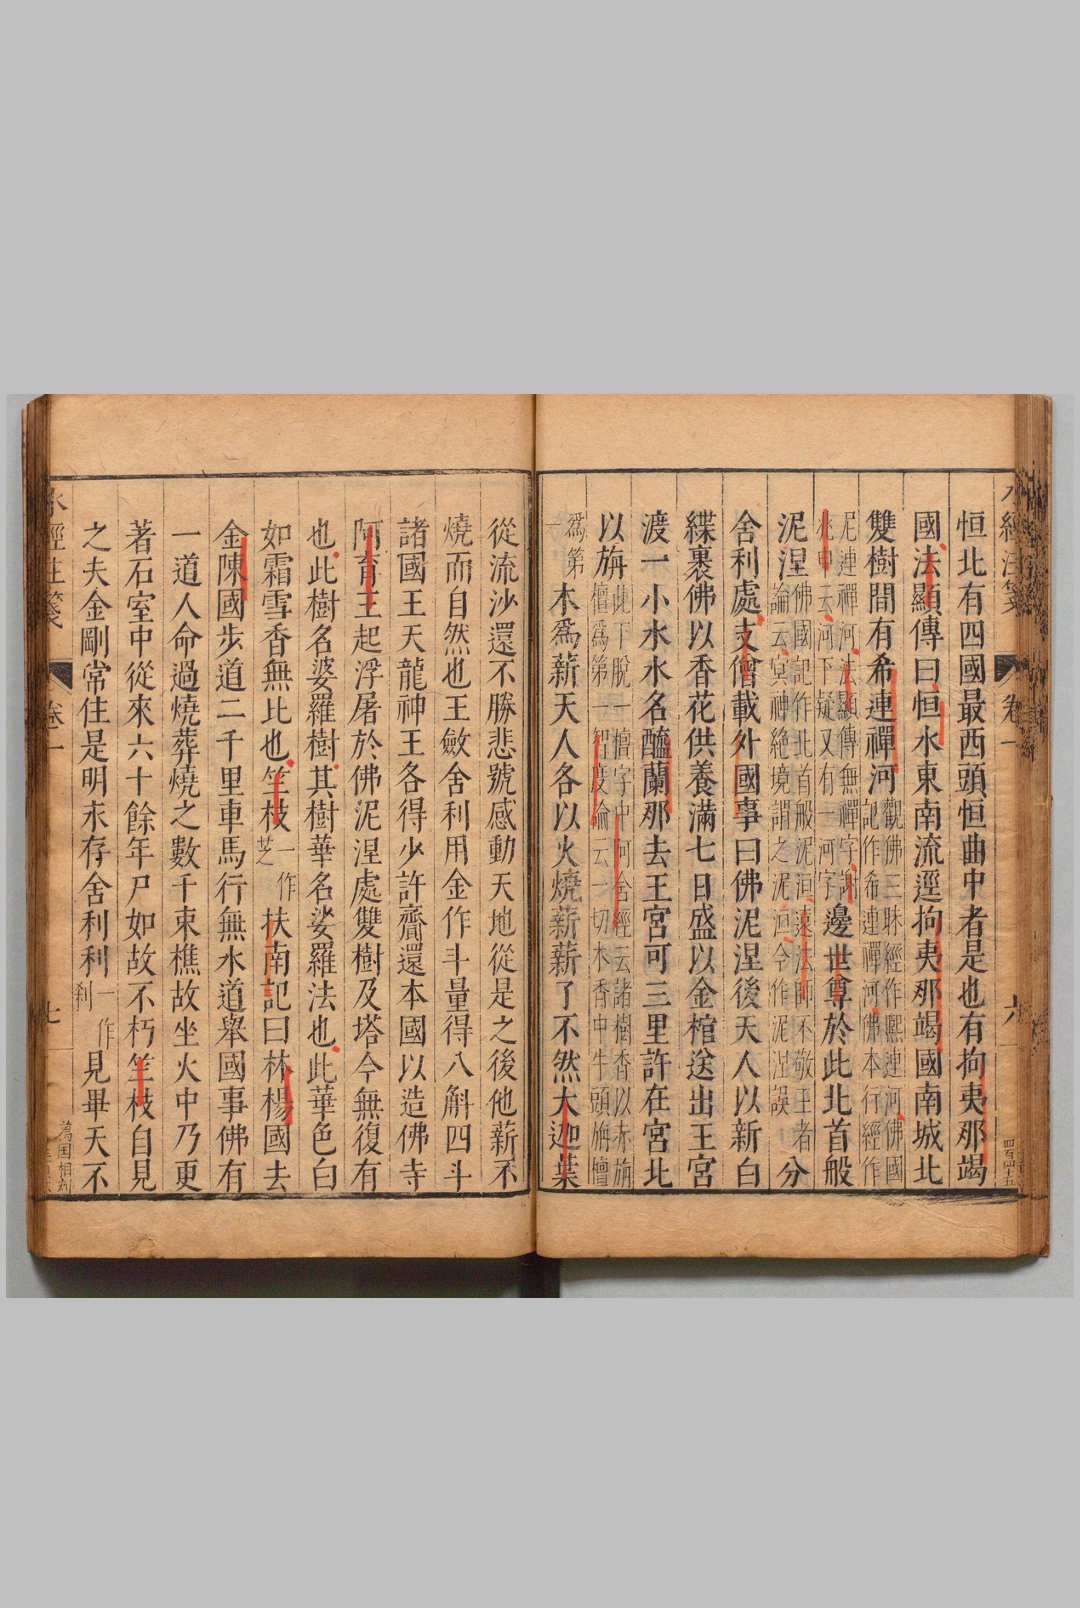 恒北有四國最西頭恒曲中者是也有拘夷那竭
國法顯傳曰恒水東南流逕拘夷那竭國南城北
雙樹間有希連禪河觀佛三昧經作熈連河佛國
記作希連禪河佛本行經作
尼連禪河法顯傳無禪字謝
兆申云河下疑又有一河字邊世尊於此北首般
泥涅佛國記作北首般泥洹遠法師不敬王者
論云冥神絶境謂之泥洹今作泥涅誤分
舍利處支僧載外國事曰佛泥涅後天人以新白
緤裹佛以香花供養滿七日盛以金棺送出王宮
渡一小水水名醯蘭那去王宮可三里許在宮北
以旃此下脫一檀字中阿含經云諸樹香以赤旃
檀為第一智度論云一切木香中牛頭旃檀
為第
一木爲薪天人各以火燒薪薪了不然大迦葉
從流沙還不勝悲號感動天地從是之後他薪不
燒而自然也王斂舍利用金作斗量得八斛四斗
諸國王天龍神王各得少許齎還本國以造佛寺
阿育王起浮屠於佛泥涅處雙樹及塔今無復有
也此樹名娑羅樹其樹華名娑羅法也此華色白
如霜雪香無比也竺枝一作
芝扶南記曰林楊國去
金陳國步道二千里車馬行無水道舉國事佛有
一道人命過燒葬燒之數千束樵故坐火中乃更
著石室中從來六十餘年尸如故不朽竺枝自見
之夫金剛常住是明永存舍利利一作
刹見畢天不
水經注箋
卷一
六
水經注箋
卷一
七